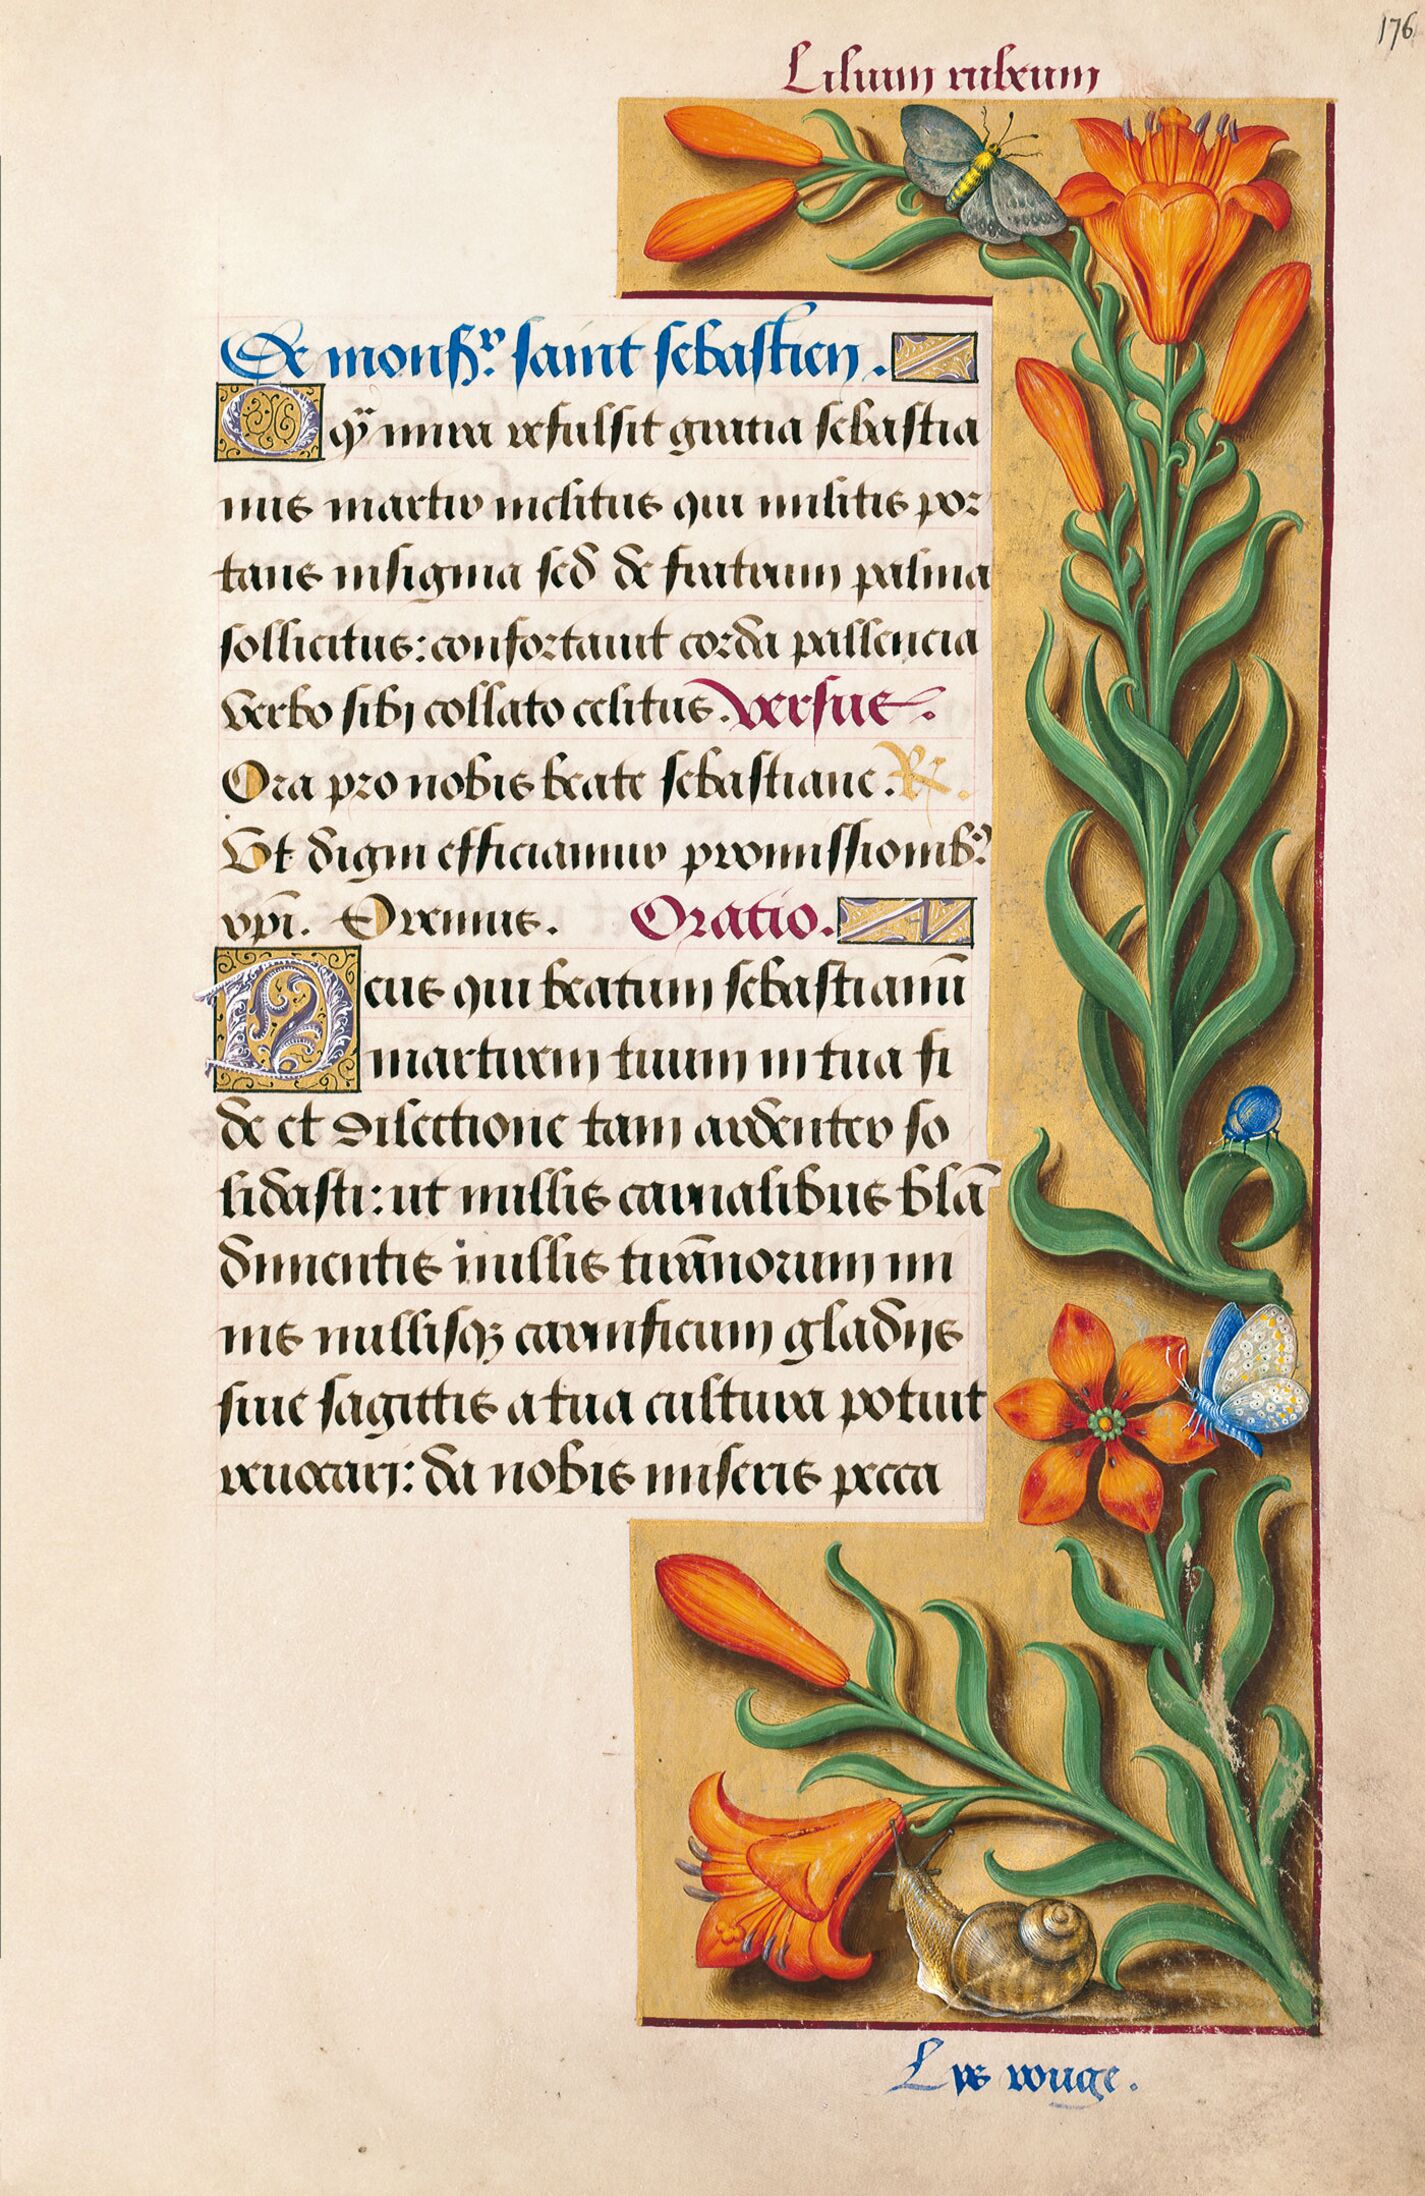 176
Lilium rubeum
De monsr. saint sebastien.
O qͫ mira refulsit gratia sebastia
nus martir inclitus qui militis por
tans insignia sed de fratrum palma
sollicitus: confortauit corda pallencia
verbo sibi collato celitus. versus.
Ora pro nobis beate sebastiane. R.
Vt digni efficiamur promissionib9
xpi. Oremus. Oratio.
Deus qui beatum sebastianū
martirem tuum in tua fi
de et dilectione tam ardenter so
lidasti: ut nullis carnalibus blā
dimentis nullis tirānorum mi
nis nullisqꝫ carnificum gladijs
siue sagittis a tua cultura potuit
reuocari: da nobis miseris pecca
Lys rouge.